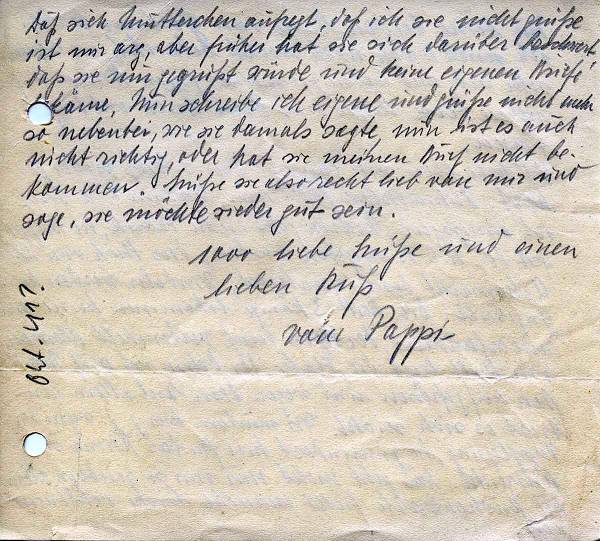 Daß sich Mutterchen aufregt, daß ich sie nicht grüße
ist mir arg, aber früher hat sie sich darüber beschwert
daß sie nur gegrüßt würde und keine eigenen Briefe
bekäme. Nun schreibe ich eigene und grüße nicht mehr
so nebenbei, wie sie damals sagte, nun ist es auch
nicht richtig, oder hat sie meinen Brief nicht be-
kommen. Grüße sie also recht lieb von mir und
sage, sie möchte wieder gut sein.
1000 liebe Grüße und einen
lieben Kuß
vom Pappi
Okt. 41?